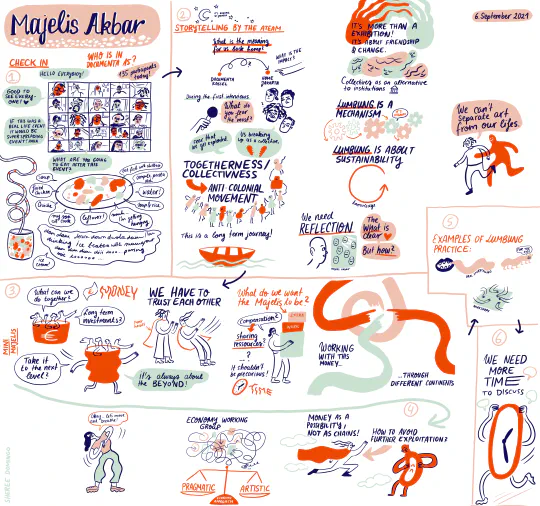 Majelis Akbar
6 September 2021
CHECK IN
WHO IS IN
DOCUMENTA AS?
1
HELLO EVERYBODY!
GOOD TO
SEE EVERY-
ONE!
IF THIS WAS A
REAL LIFE EVENT
IT WOULD BE
A
EVENT!
WHAT ARE YOU GOING
TO EAT AFTER THIS
EVENT?
Soup
Water!
Leftovers!
ICE
CREAM!
2
STORYTELLING BY THE ATEAM
What is the meaning
for us back home?
WHAT IS THE
DOCUMENTA
KASSEL
HOME
During the first interviews
What do
you fear
the most?
Us breaking
up as a collective
TOGETHERNESS/
COLLECTIVNESS
ANTI-COLONIAL
MOVEMENT
This is a long term journey!
IT'S MORE THAN A
EXHIBITION!
IT'S ABOUT FRIENDSHIP
& CHANGE.
Collectives as an alternative
to institutions
LUMBUNG IS A
MECHANISM
LUMBUNG IS ABOUT
SUSTAINABILITY
knowledge
We need
REFLECTION
The
What is
clear
But how?
We can't
separate art
from our lifes.
5
EXAMPLES OF LUMBUNG
PRACTICE:
3
MINI
MAJELIS
What can we
do together?
MONEY
Long term
investments?
Take it
to the next
level?
WE HAVE TO
TRUST EACH OTHER
it's always about
the BEYOND!
What do we want
the Majelis to be?
Compensation?
sharing
ressources?
It shouldn't
be precarious!
TIME
WORKING
WITH THIS
MONEY...
...THROUGH
DIFFERENT CONTINENTS
6
WE NEED
MORE
TIME
TO DISCUSS
Okay, let's move
and "breathe"
ECONOMY WORKING
GROUP
PRAGMATIC
ARTISTIC
MONEY AS A
POSSIBILITY,
NOT AS CHAINS!
4
HOW TO AVOID
FURTHER EXPLOITATION?